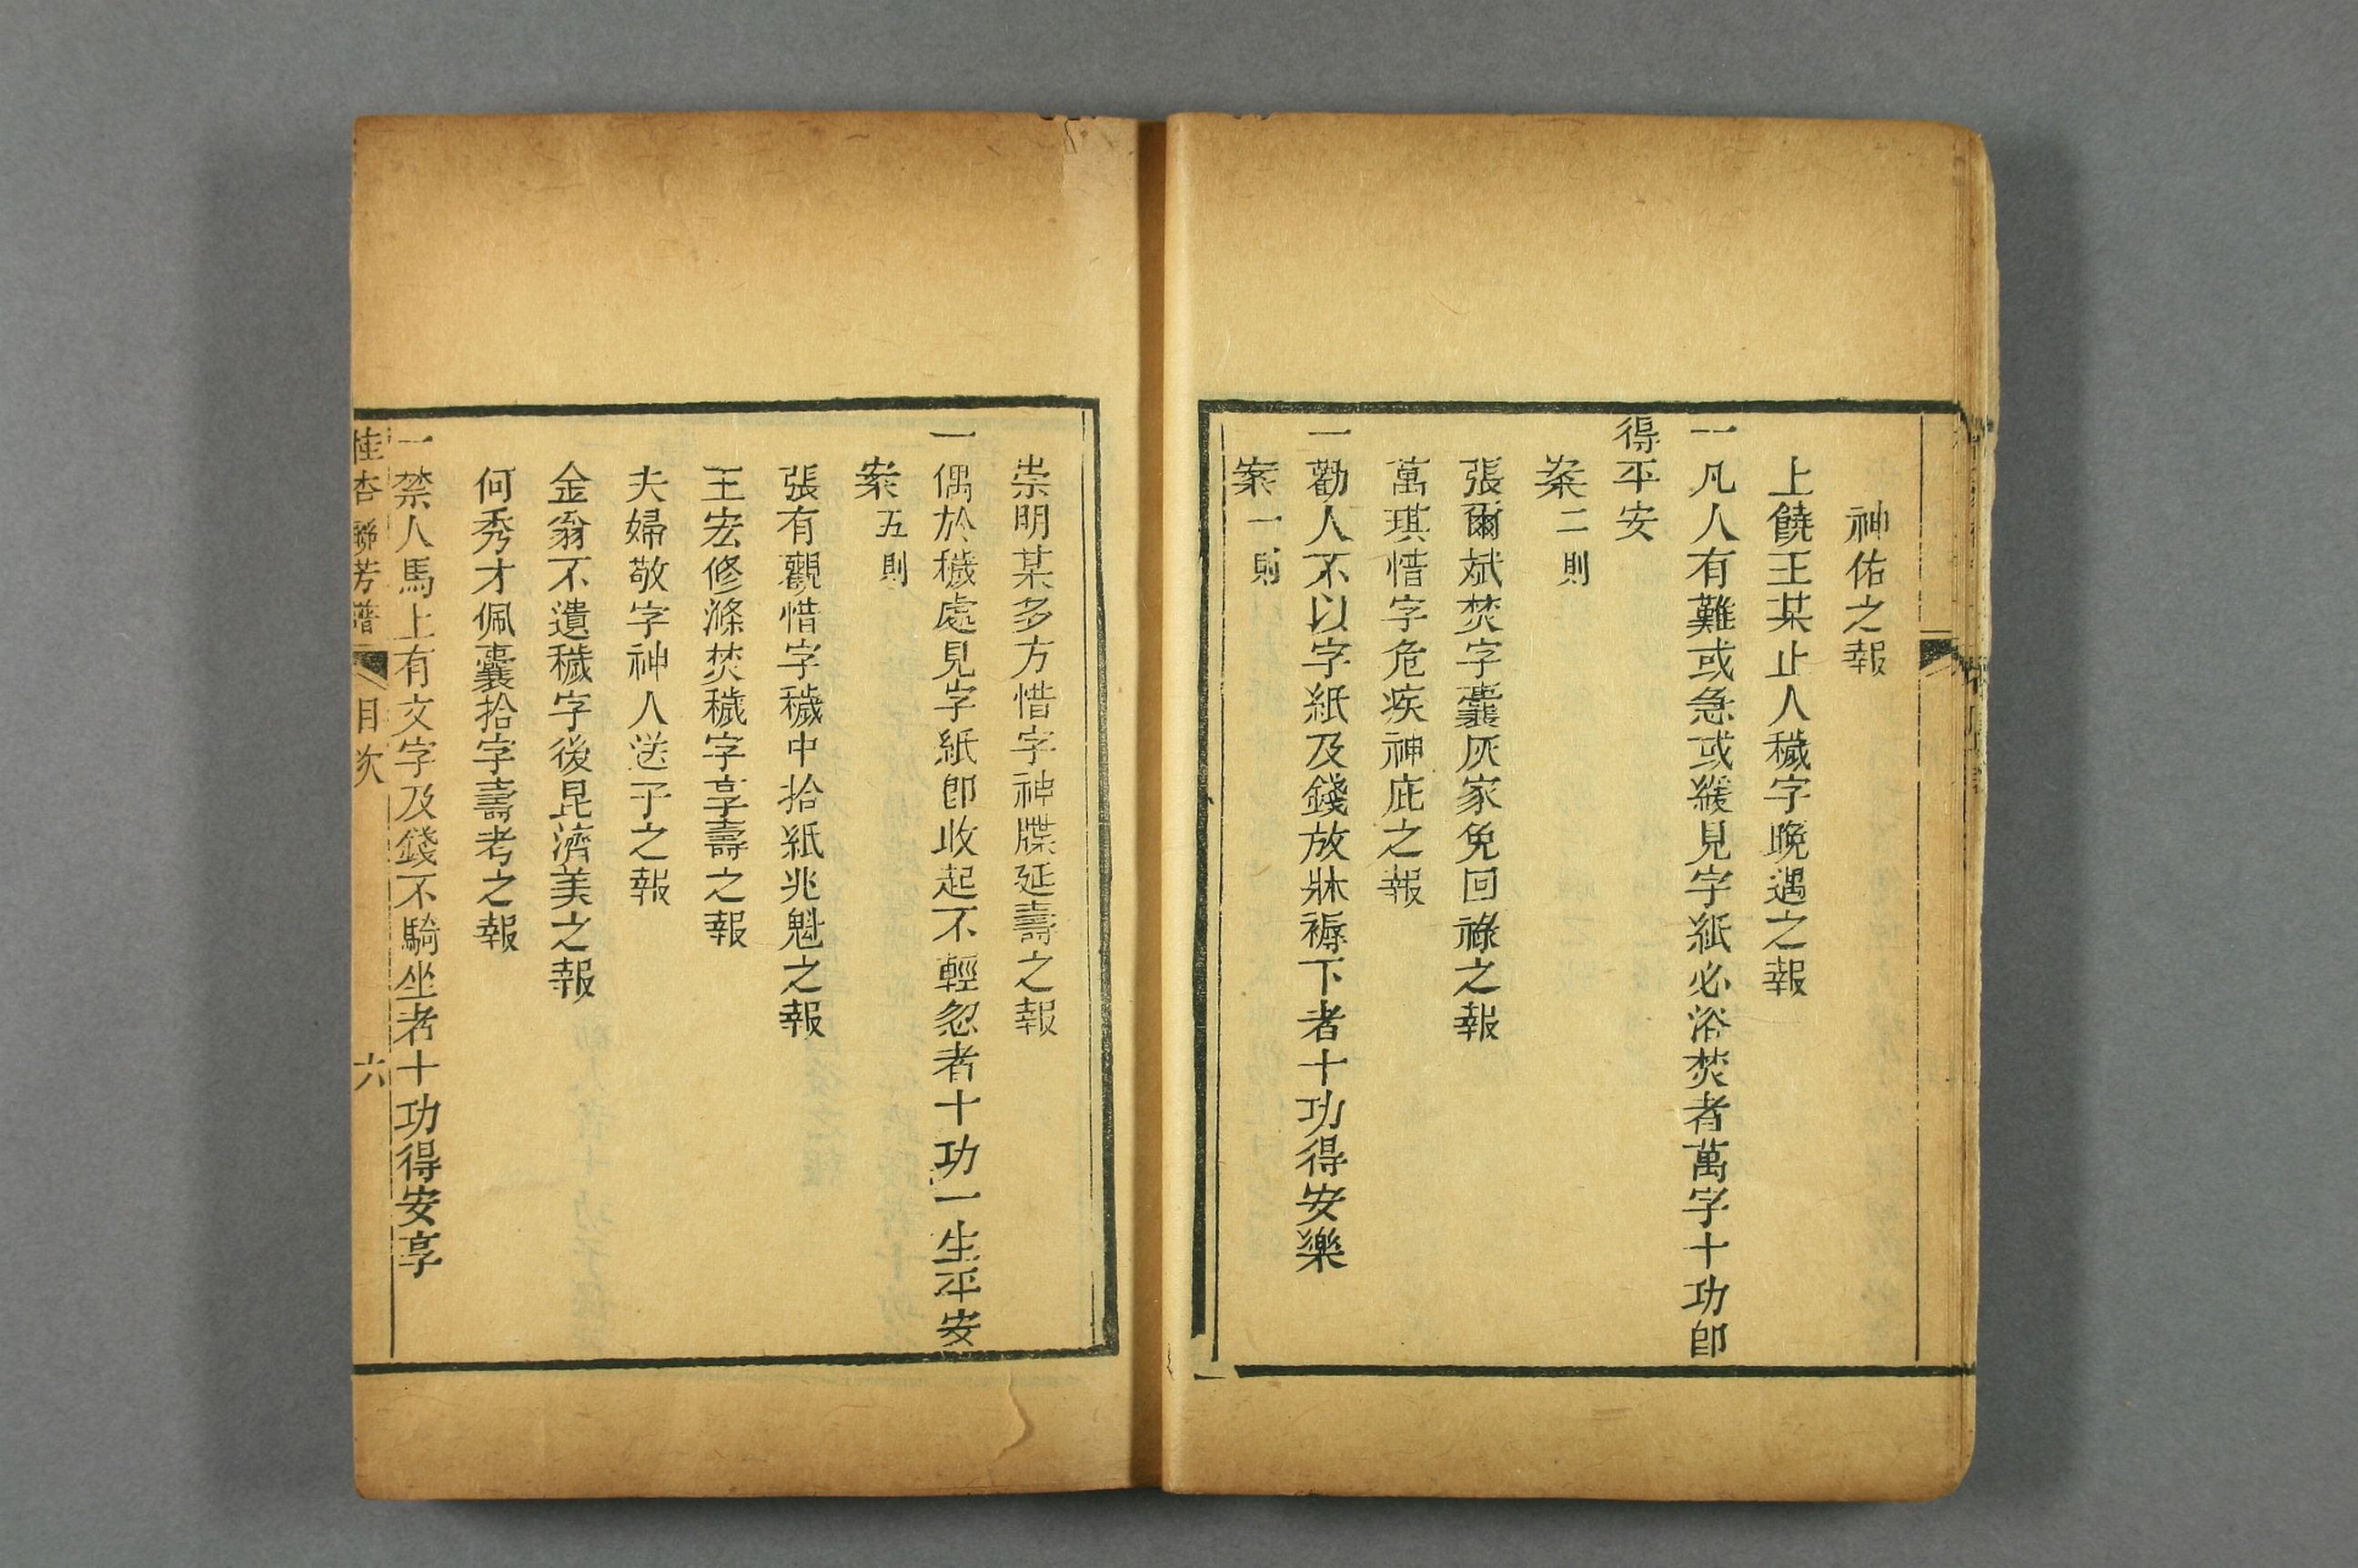 神佑之報
上饒王某止人穢字晚遇之報
一凡人有難或急或緩見字紙必浴焚者萬字十功即
得平安
案二則
張爾斌焚字囊灰家免回祿之報
萬琪惜字危疾神庇之報
一勸人不以字紙及錢放牀褥下者十功得安樂
案一則
崇明某多方惜字神牒延壽之報
一偶於穢處見字紙即收起不輕忽者十功一生平安
案五則
張有觀惜字穢中拾紙兆魁之報
王宏修滌焚穢字享壽之報
夫婦敬字神人送子之報
金翁不遺穢字後昆濟美之報
何秀才佩囊拾字壽考之報
一禁人馬上有文字及錢不騎坐者十功得安享
桂杏聯芳譜 目次 六